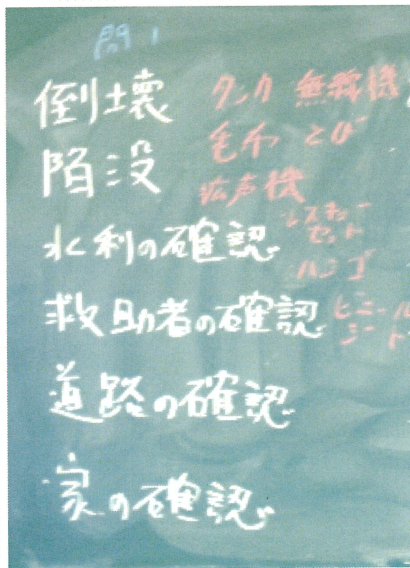 問1
倒壊
陥没
水利の確認
救助者の確認
道路の確認
家の確認
タンカ 無線機
毛布 とび
拡声機
レスキュー
セット
ハシゴ
ビニール
シート